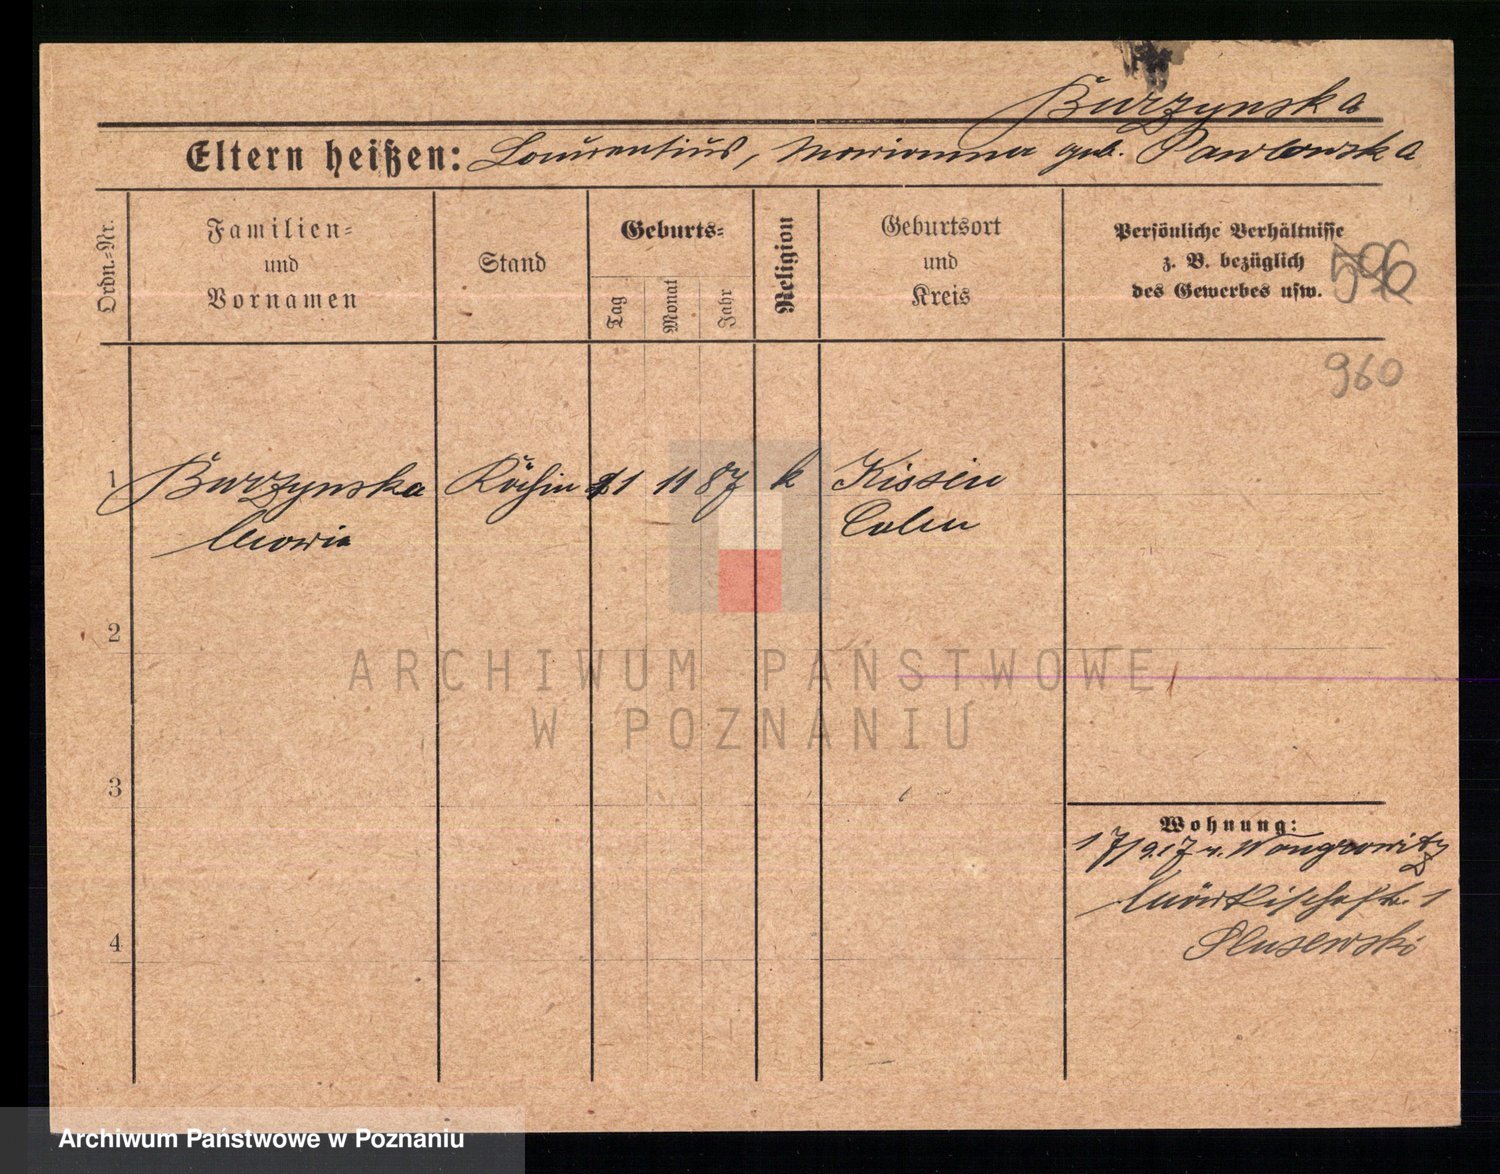 Burzynska
Eltern heißen: Laurentius, Marianna geb. Pawlowska
Ordn.-Nr.
Familien-
und
Vornamen
Stand
Geburts-
Tag
Monat
Jahr
Religion
Geburtsort
und
Kreis
Persönliche Verhältnisse
z. B. bezüglich
des Gewerbes usw.
596
960
1 Burzynska Köchin 21 11 87 k Kissin
Maria Culm
2
3
4
Wohnung:
1 7 1917 v. Wongrowitz
Märkischestr. 1
Slusewski
ARCHIWUM PAŃSTWOWE
W POZNANIU
Archiwum Państwowe w Poznaniu